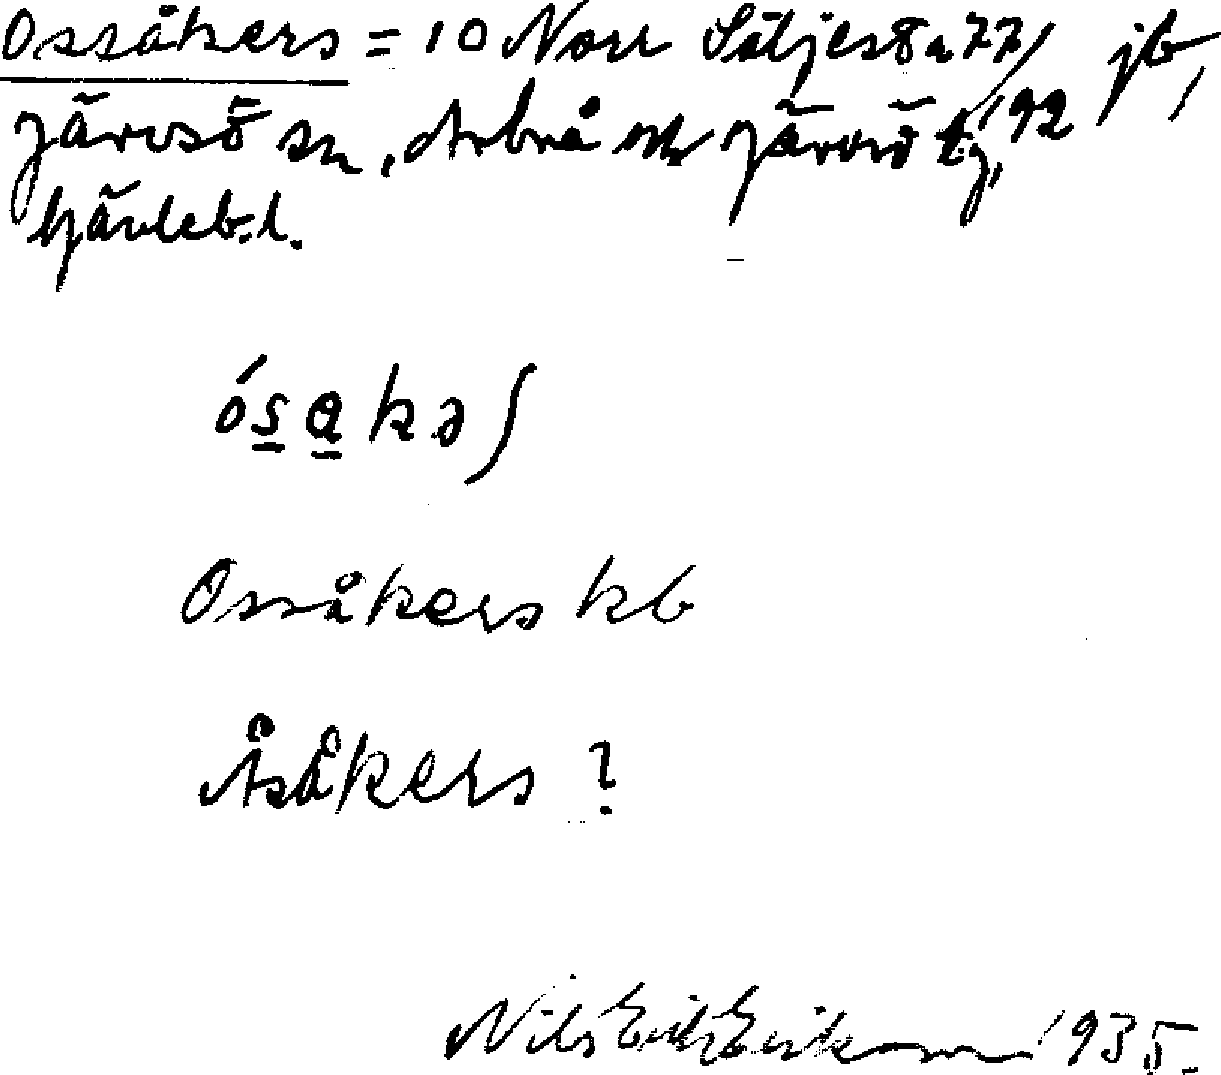 Ossåkers = 10 Norr Säljesta 77/92 jb,
Järvsö sn, Arbrå och Järvsö tg,
Gävleb. l.
ósakəʃ
Ossåkers kb
Åsåkers ?
Nils Erik Erikson 1935.